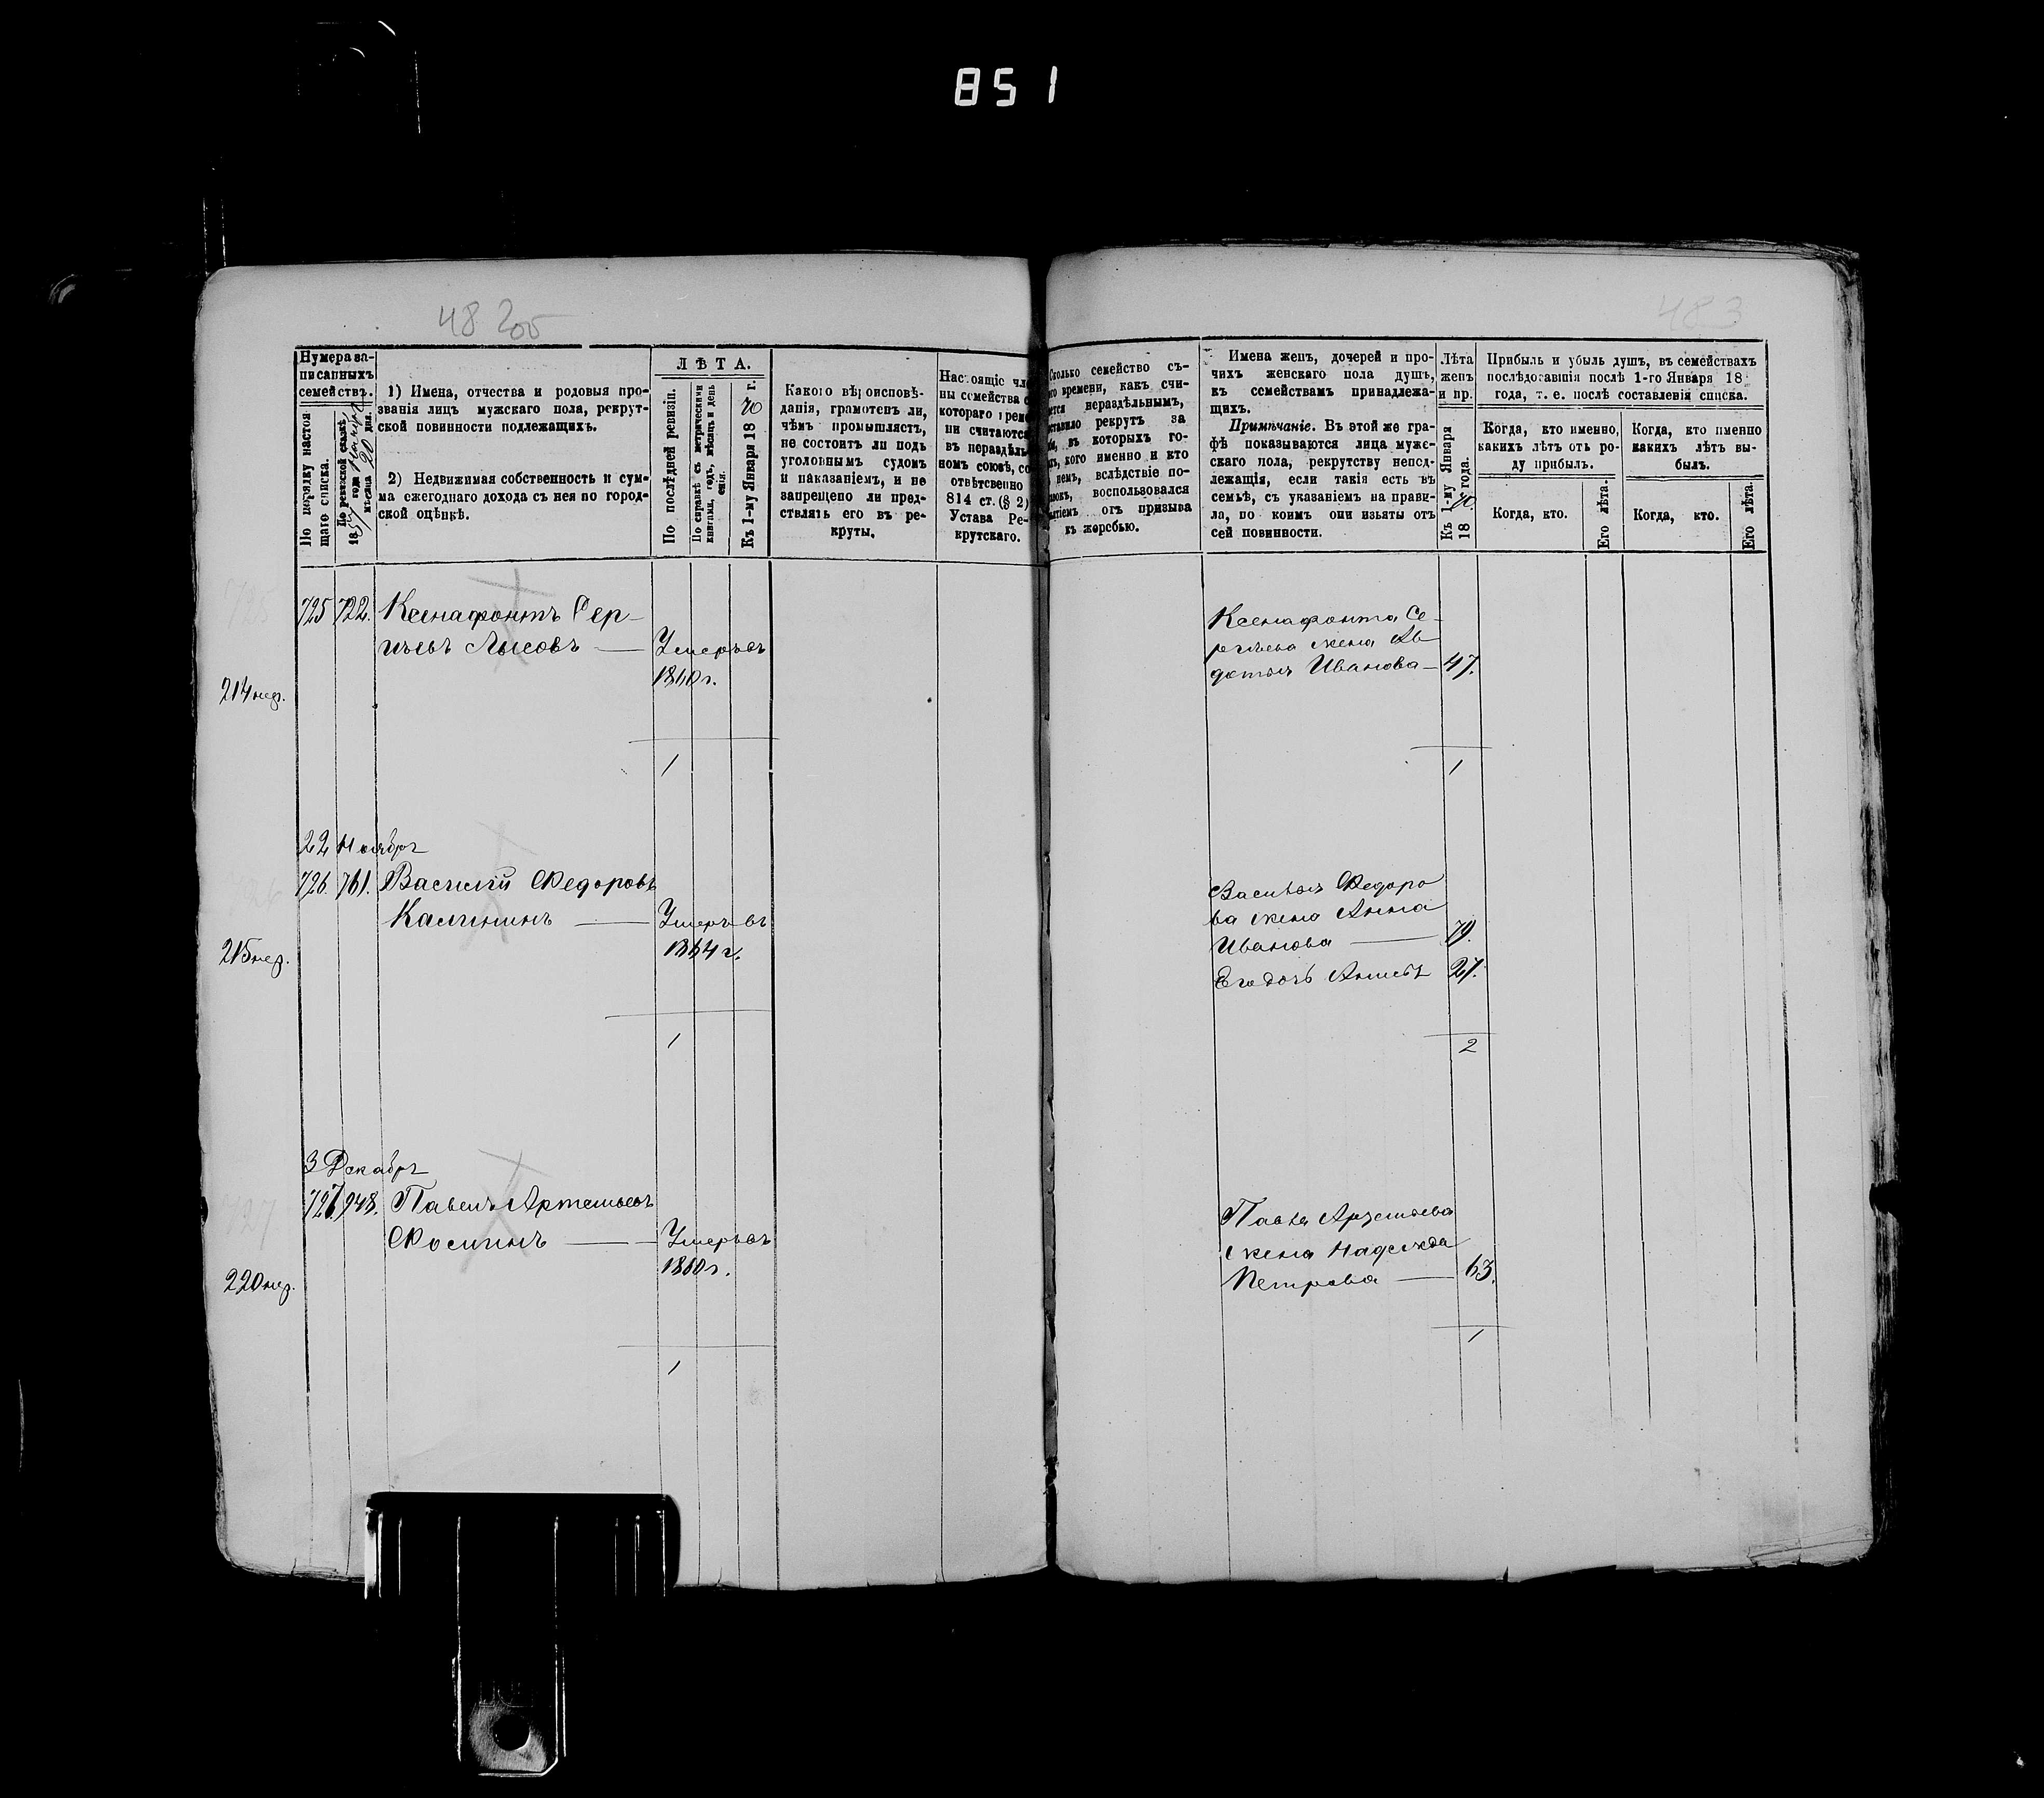 851
48 2об
483
Нумера за-
писанныхъ
семействъ.
По порядку настоя
щаго списка.
По ревизской сказкѣ
1857 года
мѣсяца 20 дня.
1) Имена, отчества и родовыя про-
званія лицъ мужскаго пола, рекрут-
ской повинности подлежащихъ.
2) Недвижимая собственность и сум-
ма ежегоднаго дохода съ нея по город-
ской оцѣнкѣ.
ЛѢТА.
По послѣдней ревизіи.
По справкѣ съ метрическими
книгами, годъ, мѣсяцъ и день
Къ 1-му Января 1870 г.
Какого вѣроисповѣ-
данія, грамотенъ ли,
чѣмъ промышляетъ,
не состоитъ ли подъ
уголовнымъ судомъ
и наказаніемъ, и не
запрещено ли пред-
ставлять его въ ре-
круты.
Настоящіе чле
ны семейства с
котораго време
ни считаются
въ нераздѣль-
номъ союзѣ, со
отвѣтсвенно
814 ст. (§ 2)
Устава Ре-
крутскаго.
Сколько семейство съ-
го времени, какъ счи-
ется нераздѣльнымъ,
ставило рекрутъ за
въ которыхъ го-
кого именно и кто
немъ, вслѣдствіе по-
воспользовался
отъ призыва
къ жеребью.
Имена женъ, дочерей и про-
чихъ женскаго пола душъ,
къ семействамъ принадлежа-
щихъ.
Примѣчаніе. Въ этой же гра-
фѣ показываются лица муже-
скаго пола, рекрутству непод-
лежащія, если такія есть въ
семьѣ, съ указаніемъ на прави-
ла, по коимъ они изъяты отъ
сей повинности.
Лѣта
женъ
и пр.
Къ 1-му Января
1870 года.
Прибыль и убыль душъ, въ семействахъ
послѣдовавшія послѣ 1-го Января 18
года, т. е. послѣ составленія списка.
Когда, кто именно,
какихъ лѣтъ отъ ро-
ду прибылъ.
Когда, кто именно
какихъ лѣтъ вы-
былъ.
Когда, кто.
Его лѣта.
Когда, кто.
Его лѣта.
725 722. Ксенафонтъ Сер-
гѣевъ Лысовъ — Умеръ въ
1860 г.
214 нед.
1
Ксенафонта Се-
ргѣева жена Ав-
дотья Иванова — 47.
1
22 Ноября
726. 761. Василій Федоровъ
Калининъ — Умеръ въ
1864 г.
215 нед.
1
Василья Федоро
ва жена Анна
Иванова — 79.
Его дочь Анисья 27.
2
3 Декабря
727. 948. Павелъ Артемьевъ
Фоминъ — Умеръ въ
1860 г.
220 нед.
1
Павла Артемьева
жена Надежда
Петрова — 63.
1